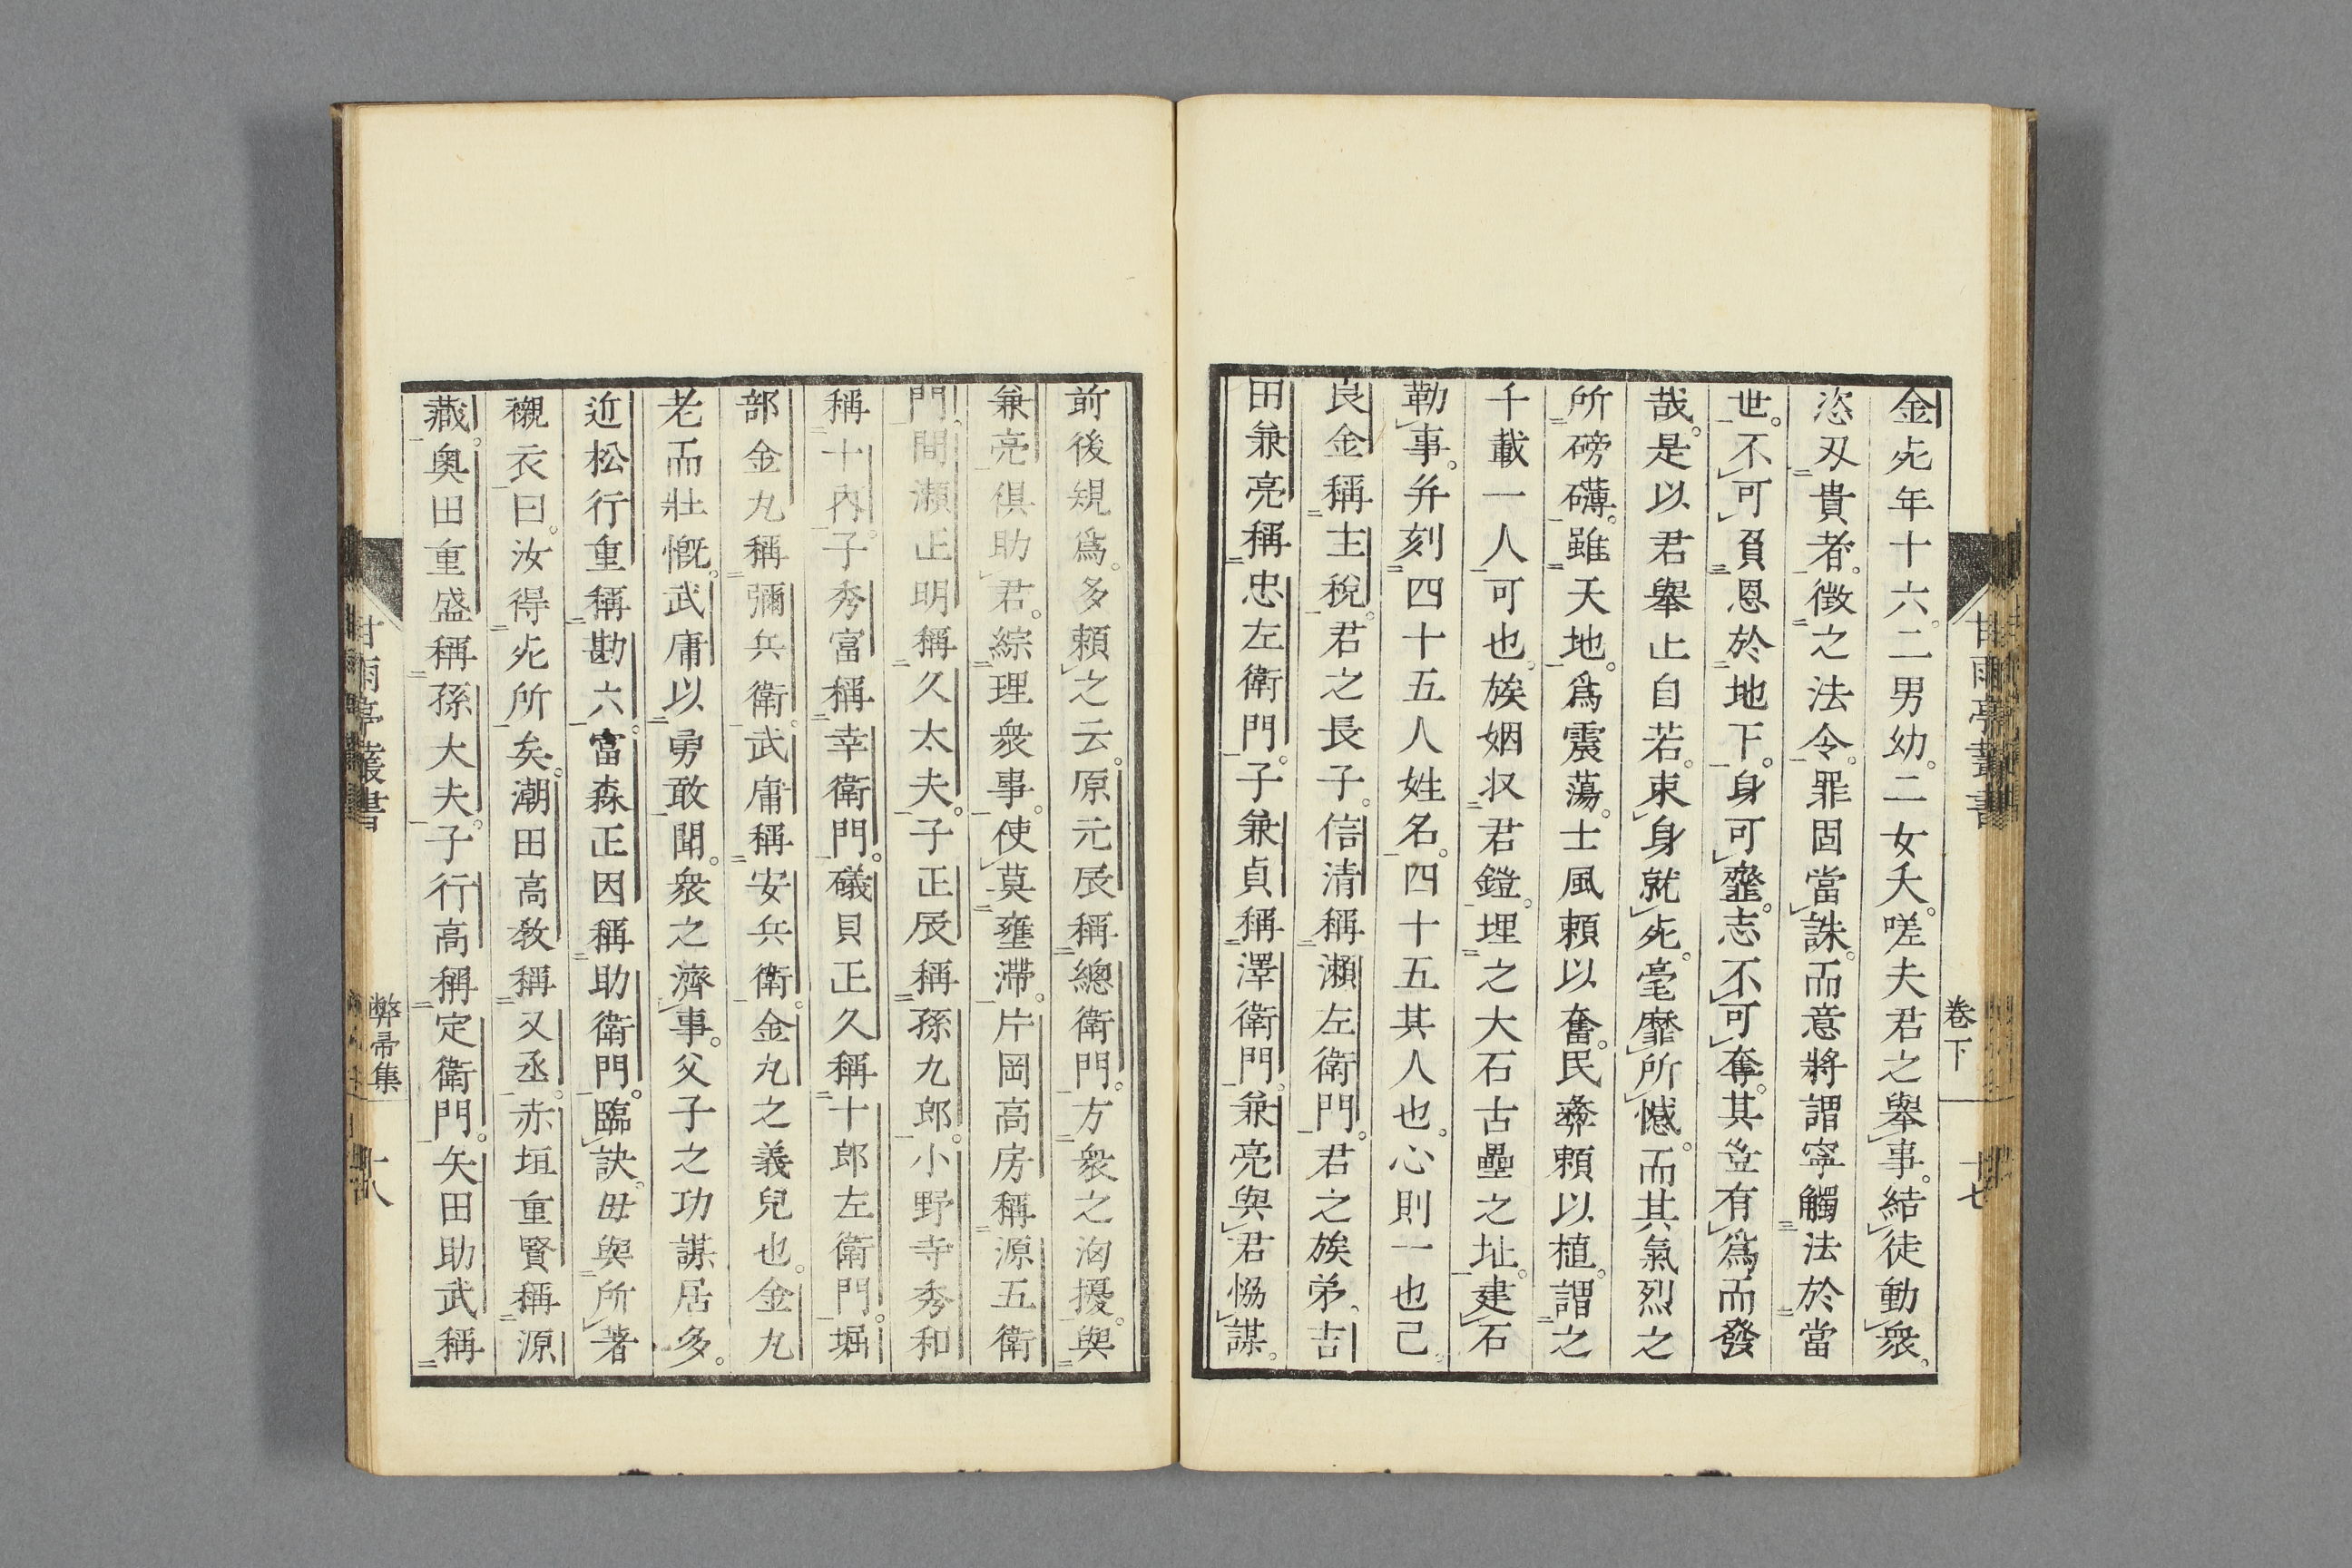 金死年十六。二男幼。二女夭。嗟夫君之擧事。結徒動衆。
恣刃貴者。徵之法令。罪固當誅。而意將謂寧觸法於當
世。不可負恩於地下。身可虀。志不可奪。其豈有爲而發
哉。是以君擧止自若。束身就死。毫靡所憾。而其氣烈之
所磅礴。雖天地。爲震蕩。士風頼以奮。民彝頼以植。謂之
千載一人可也。族姻収君鐙。埋之大石古壘之址。建石
勒事。弁刻四十五人姓名。四十五其人也。心則一也已。
良金稱主稅。君之長子。信清稱瀬左衛門。君之族弟。吉
田兼亮稱忠左衛門。子兼貞稱澤衛門。兼亮與君恊謀。
甘雨亭叢書
卷下
十七
前後規爲。多頼之云。原元辰稱總衛門。方衆之洶擾。與
兼亮俱助君。綜理衆事。使莫壅滯。片岡高房稱源五衛
門。間瀬正明稱久太夫。子正辰稱孫九郎。小野寺秀和
稱十内。子秀富稱幸衛門。礒貝正久稱十郎左衛門。堀
部金丸稱彌兵衛。武庸稱安兵衛。金丸之義兒也。金丸
老而壯慨。武庸以勇敢聞。衆之濟事。父子之功謀居多。
近松行重稱勘六。富森正因稱助衛門。臨訣。母與所著
襯衣曰。汝得死所矣。潮田高敎稱又丞。赤垣重賢稱源
藏。奥田重盛稱孫大夫。子行高稱定衛門。矢田助武稱
甘雨亭叢書
弊帚集
十八